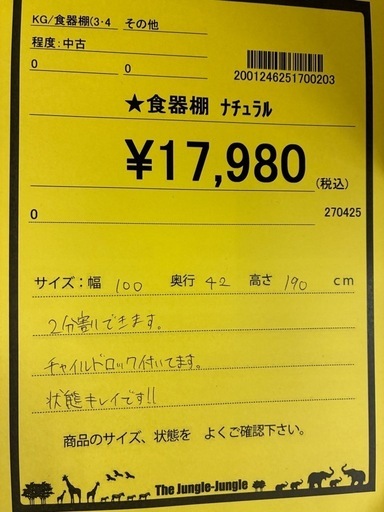 KG/食器棚(3･4 その他
程度:中古
0 0
2001246251700203
★食器棚 ナチュラル
¥17,980 (税込)
0 270425
サイズ:幅 100 奥行 42 高さ 190 cm
2分割できます。
チャイルドロック付いてます。
状態キレイです!!
商品のサイズ、状態を よくご確認下さい。
The Jungle-Jungle